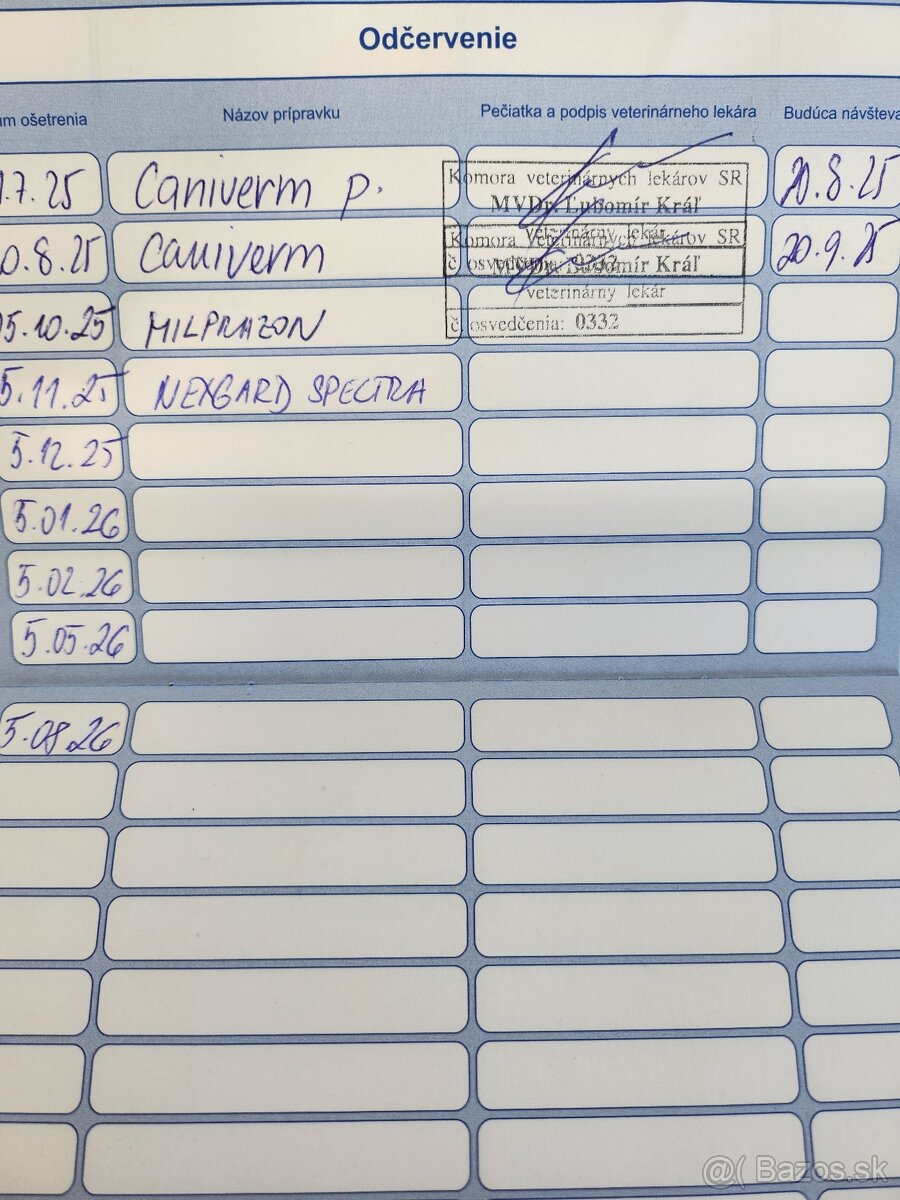 Odčervenie
um ošetrenia Názov prípravku Pečiatka a podpis veterinárneho lekára Budúca návšteva
.7.25 Caniverm p. 20.8.25
Komora veterinárnych lekárov SR
MVDr. Ľubomír Kráľ
veterinárny lekár
0.8.25 Caniverm 20.9.25
Komora veterinárnych lekárov SR
MVDr. Ľubomír Kráľ
veterinárny lekár
č. osvedčenia: 0332
5.10.25 MILPRAZON
5.11.25 NEXGARD SPECTRA
5.12.25
5.01.26
5.02.26
5.05.26
5.08.26
@( Bazos.sk